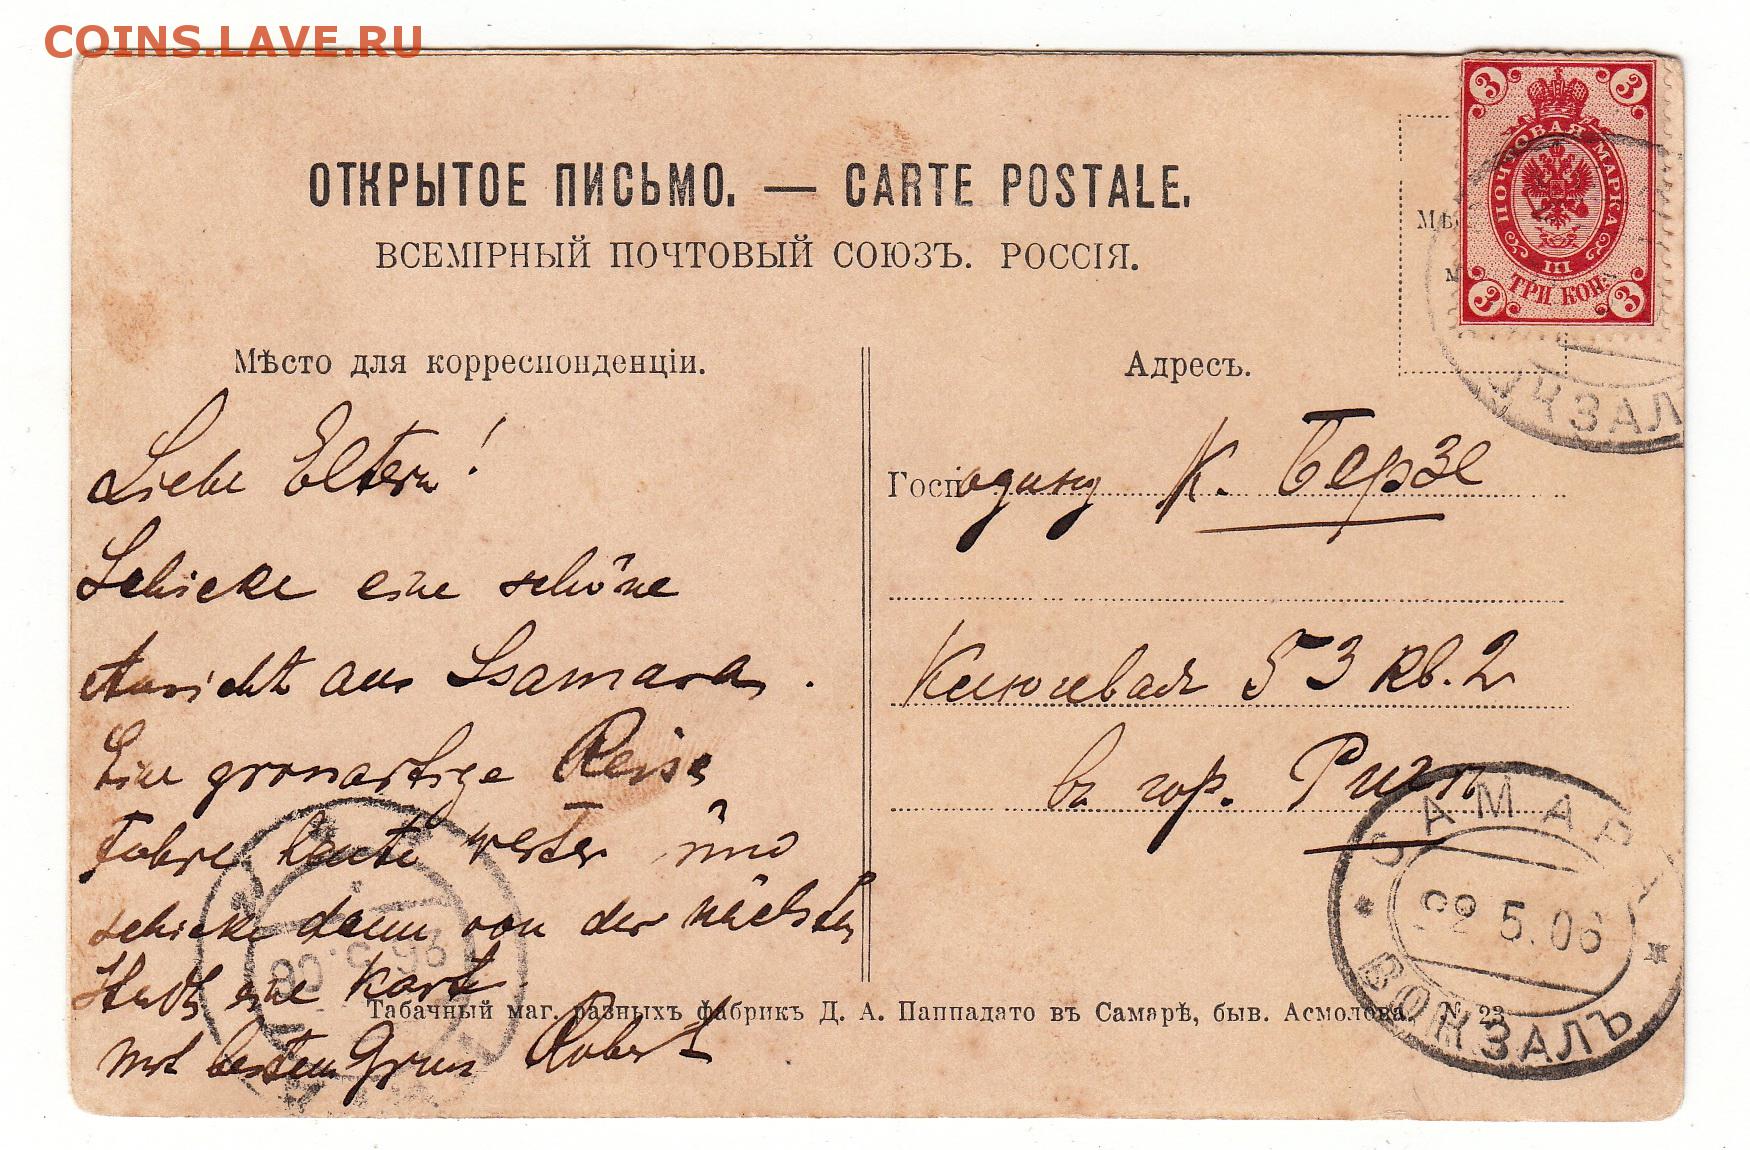 COINS.LAVE.RU
ОТКРЫТОЕ ПИСЬМО. — CARTE POSTALE.
ВСЕМІРНЫЙ ПОЧТОВЫЙ СОЮЗЪ. РОССІЯ.
Мѣсто для корреспонденціи.
Liebe Eltern!
Schicke eine schöne
Ansicht aus Ssamara.
Eine grossartige Reise
Fahre heute weiter und
schicke dann von der nächsten
Stadt eine Karte
mit besten Gruss Robert
Адресъ.
Господину К. Берзе
Ключевая 53 кв. 2
въ гор. Риги
Табачный маг. разныхъ фабрикъ Д. А. Паппадато въ Самарѣ, быв. Асмолова. № 23
3 3
ПОЧТОВАЯ МАРКА
III
ТРИ КОП.
3 3
Мѣ
м
КЗАЛ
САМАРА
5.06
ВОКЗАЛЪ